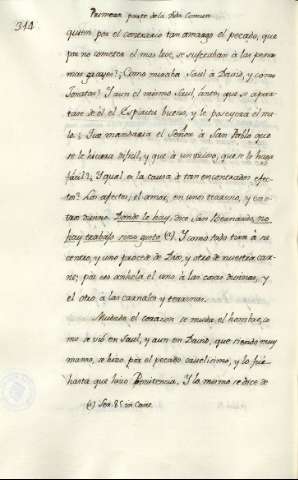 Primera parte de la Vida Comun
314
quim por el contrario tan amargo el pecado, que
por no cometer el mas leve, se sugetaban à las penas
mas graves? ¿Como miraba Saul a David, y como
Jonatas? Y aun el mismo Saul, antes que se apar-
tare de èl el Espiritu bueno, y le poseyera el ma-
lo? ¿Que mandaria el Señor à San Pablo que
se le hiciera dificil, y que à un vicioso, que no se le haga
facil? ¿Y qual es la causa de tan encontrados efec-
tos? Los afectos; el amar, en uno terreno, y en
otro divino. Donde le hay, dice San Bernardo, no
hay trabajo sino gusto (1). Y como todo tira à su
centro, y uno procede de Dios, y otro de nuestra car-
ne; por eso anhela el uno à las cosas divinas, y
el otro à las carnales y terrenas.
Mudado el corazon se muda el hombre, co-
mo se vió en Saul, y aun en David, que siendo muy
manso, se hizo por el pecado cruelisimo, y lo fue
hasta que hizo Penitencia. Y lo mismo se dice de
(1) Ser. 85. in Cant.